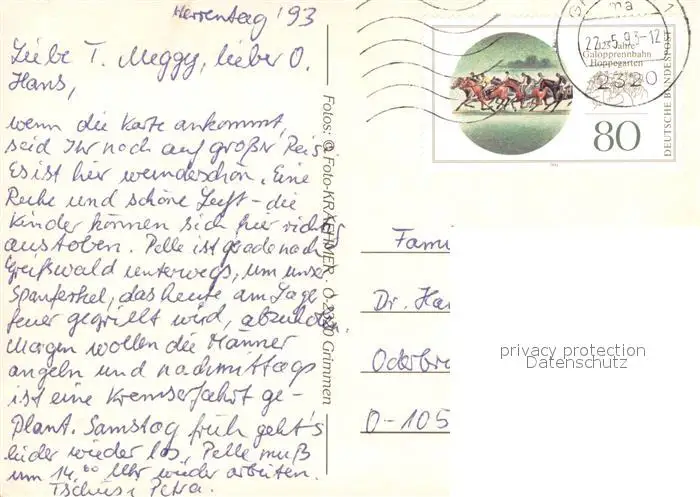 Herrentag '93
Liebe T. Meggy, lieber O.
Hans,
wenn die Karte ankommt,
seid Ihr noch auf großer Reise.
Es ist hier wunderschön. Eine
Ruhe und schöne Luft – die
Kinder können sich hier richtig
austoben. Pelle ist gerade nach
Greifswald unterwegs, um unser
Spanferkel, das heute am Lager-
feuer gegrillt wird, abzuholen.
Morgen wollen die Männer
angeln und nachmittags
ist eine Kremserfahrt ge-
plant. Samstag früh geht's
leider wieder los, Pelle muß
um 14.00 Uhr wieder arbeiten.
Tschüssi Petra.
Fotos: © Foto-KRAEHMER · O-2320 Grimmen
22.-5.93-12
2320
125 Jahre
Galopprennbahn
Hoppegarten
80
DEUTSCHE BUNDESPOST
Fami
Dr. Ha
Oderbr
O-105
privacy protection
Datenschutz